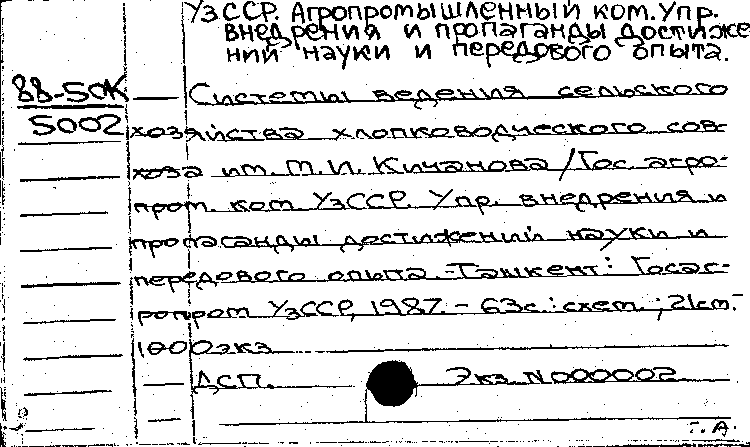 УзССР. Агропромышленный ком. Упр.
внедрения и пропаганды достиже
ний науки и передового опыта.
88-50К
5002
Системы ведения сельского
хозяйства хлопководческого сов-
хоза им. М.И. Кичанова / Гос. агро-
пром. ком УзССР. Упр. внедрения и
пропаганды достижений науки и
передового опыта. - Ташкент: Госаг-
ропром УзССР, 1987. - 63с.: схем.; 21см. -
1000экз
ДСП. Экз. N000002
Т.А.